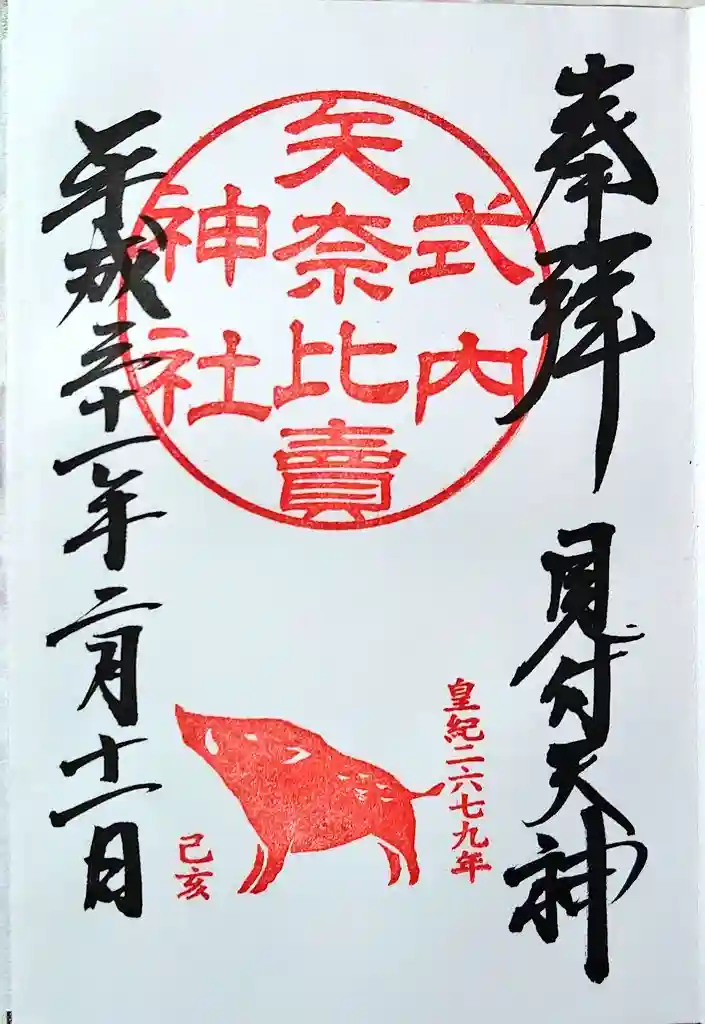 奉拝 見付天神
式内
矢奈比賣
神社
皇紀二六七九年
己亥
平成三十一年二月十一日